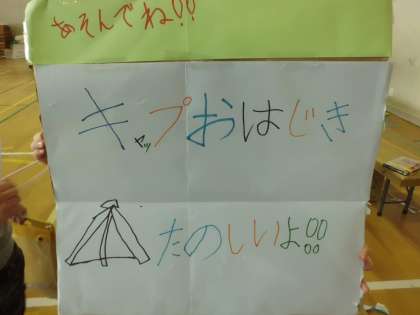 あそんでね!!
キャップおはじき
たのしいよ!!